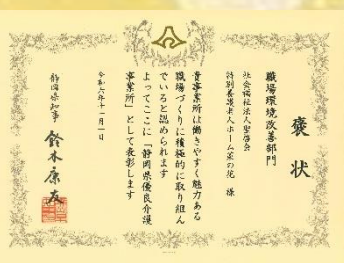 褒状
職場環境改善部門
社会福祉法人聖啓会
特別養護老人ホーム菜の花 様
貴事業所は働きやすく魅力ある
職場づくりに積極的に取り組ん
でいると認められます
よってここに「静岡県優良介護
事業所」として表彰します
令和六年十一月一日
静岡県知事 鈴木康友